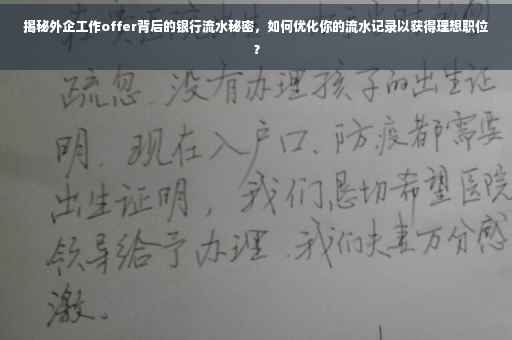 揭秘外企工作offer背后的银行流水秘密，如何优化你的流水记录以获得理想职位
？
疏忽.没有办理孩子的出生证
明.现在入户口、防疫都需要
出生证明，我们恳切希望医院
领导给予办理.我们夫妻万分感
激。